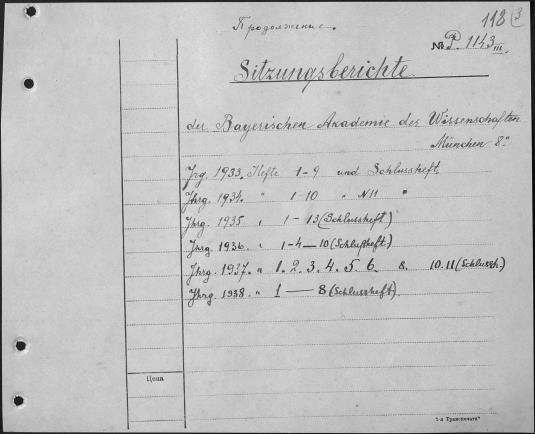 Продолжение.
118 (3
№ P. 1143 III.
Sitzungsberichte
der Bayerischen Akademie des Wissenschaften
München 8°
Jrg. 1933. Hefte 1-9 und Schlussheft
Jhrg. 1934. " 1-10 " N11 "
Jhrg. 1935 " 1-13 (Schlussheft)
Jhrg. 1936 " 1-4—10 (Schlußheft.)
Jhrg. 1937. " 1. 2. 3. 4. 5. 6. 8. 10. 11 (Schlussh.)
Jhrg. 1938 " 1 — 8 (Schlussheft).
Цена